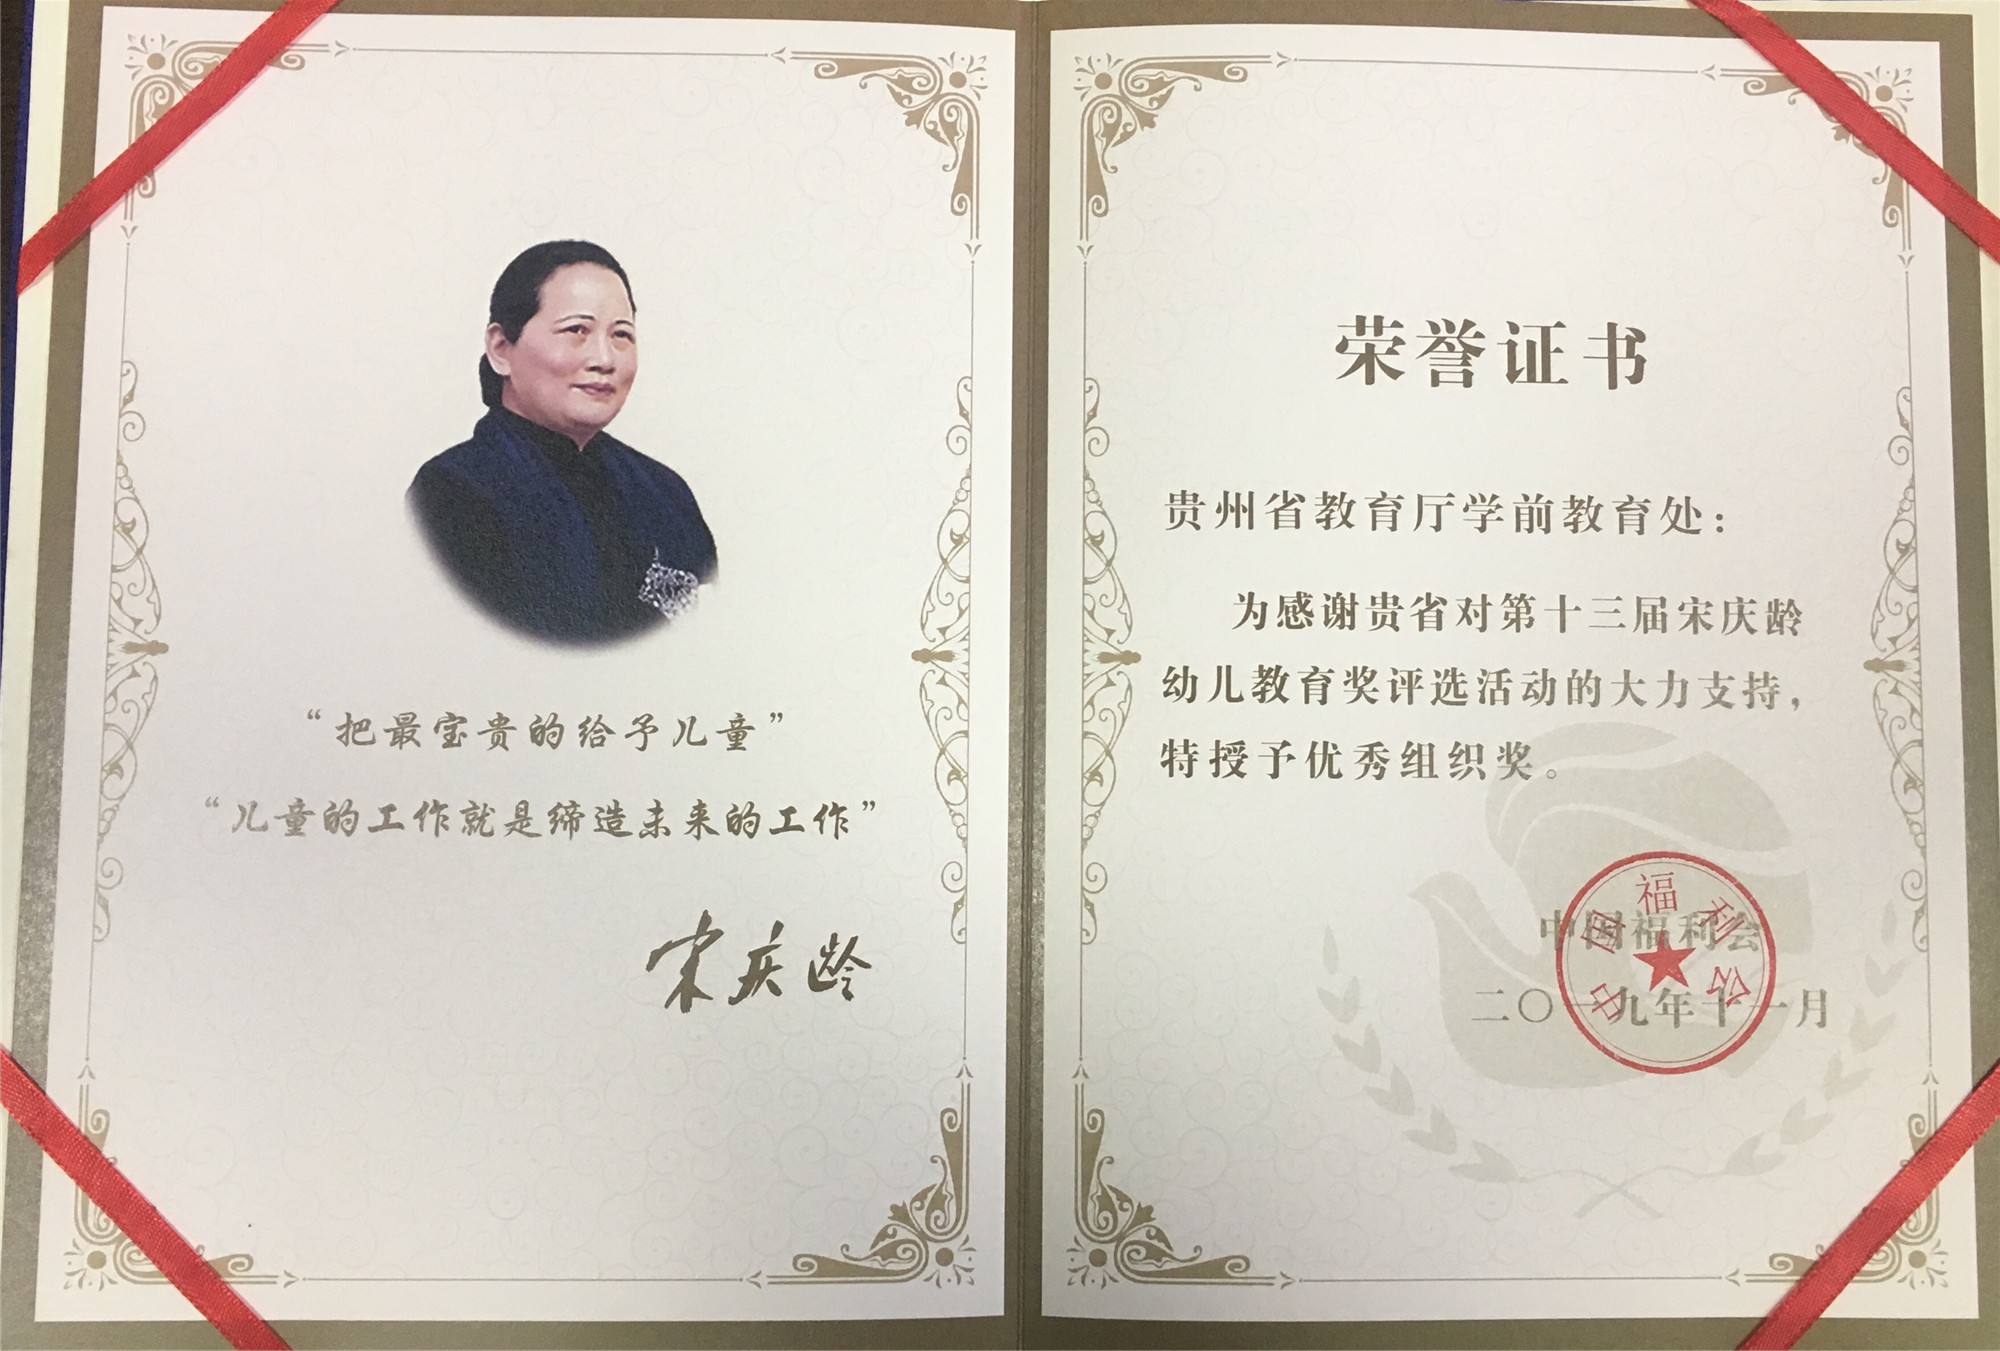 “把最宝贵的给予儿童”
“儿童的工作就是缔造未来的工作”
宋庆龄
荣誉证书
贵州省教育厅学前教育处：
为感谢贵省对第十三届宋庆龄
幼儿教育奖评选活动的大力支持，
特授予优秀组织奖。
中国福利会
二〇一九年十一月
中国福利会